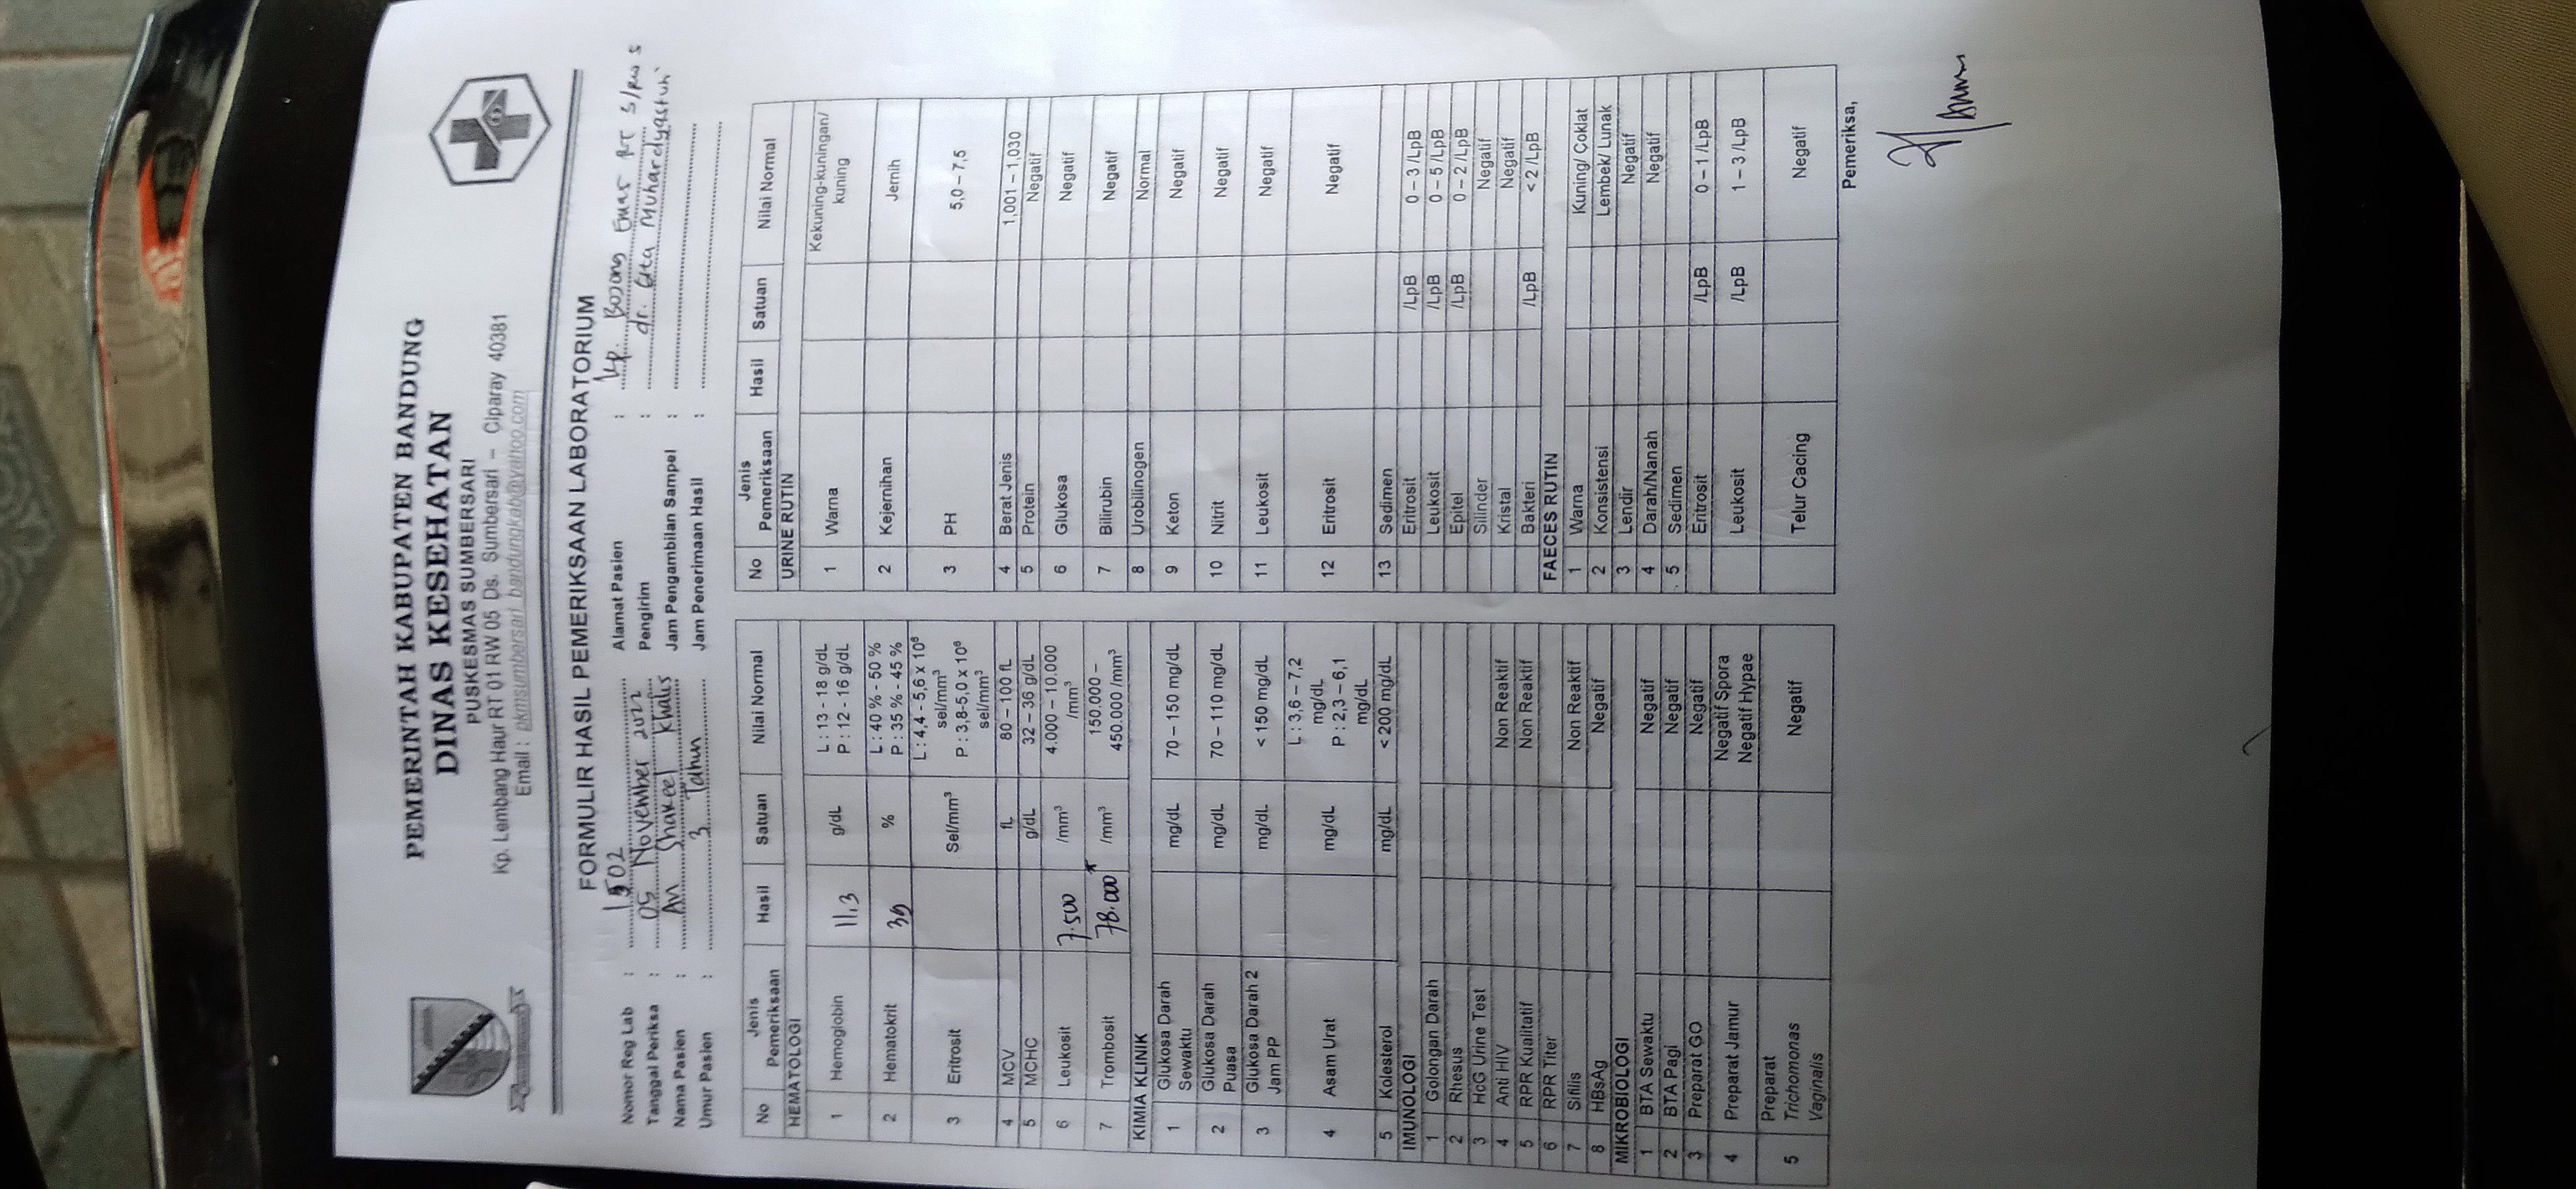 PEMERINTAH KABUPATEN BANDUNG
DINAS KESEHATAN
PUSKESMAS SUMBERSARI
Kp. Lembang Haur RT 01 RW 05 Ds. Sumbersari – Ciparay 40381
Email : pkmsumbersari_bandungkab@yahoo.com
FORMULIR HASIL PEMERIKSAAN LABORATORIUM
Nomor Reg Lab : 1502
Tanggal Periksa : 05 November 2022
Nama Pasien : An Shakeel Khalis
Umur Pasien : 3 Tahun
Alamat Pasien : Kp. Bojong Emas RT 5/RW 5
Pengirim : dr. Gita Muhardyastuti
Jam Pengambilan Sampel :
Jam Penerimaan Hasil :
No Jenis Pemeriksaan Hasil Satuan Nilai Normal
HEMATOLOGI
1 Hemoglobin 11,3 g/dL L : 13 - 18 g/dL
P : 12 - 16 g/dL
2 Hematokrit 39 % L : 40 % - 50 %
P : 35 % - 45 %
3 Eritrosit Sel/mm³ L : 4,4 - 5,6 x 10⁶ sel/mm³
P : 3,8-5,0 x 10⁶ sel/mm³
4 MCV fL 80 – 100 fL
5 MCHC g/dL 32 – 36 g/dL
6 Leukosit 7.500 /mm³ 4.000 – 10.000 /mm³
7 Trombosit 78.000* /mm³ 150.000 – 450.000 /mm³
KIMIA KLINIK
1 Glukosa Darah Sewaktu mg/dL 70 – 150 mg/dL
2 Glukosa Darah Puasa mg/dL 70 – 110 mg/dL
3 Glukosa Darah 2 Jam PP mg/dL < 150 mg/dL
4 Asam Urat mg/dL L : 3,6 – 7,2 mg/dL
P : 2,3 – 6,1 mg/dL
5 Kolesterol mg/dL < 200 mg/dL
IMUNOLOGI
1 Golongan Darah
2 Rhesus
3 HcG Urine Test
4 Anti HIV Non Reaktif
5 RPR Kualitatif Non Reaktif
6 RPR Titer
7 Sifilis Non Reaktif
8 HBsAg Negatif
MIKROBIOLOGI
1 BTA Sewaktu Negatif
2 BTA Pagi Negatif
3 Preparat GO Negatif
4 Preparat Jamur Negatif Spora
Negatif Hypae
5 Preparat Trichomonas Vaginalis Negatif
No Jenis Pemeriksaan Hasil Satuan Nilai Normal
URINE RUTIN
1 Warna Kekuning-kuningan/ kuning
2 Kejernihan Jernih
3 PH 5,0 – 7,5
4 Berat Jenis 1,001 – 1,030
5 Protein Negatif
6 Glukosa Negatif
7 Bilirubin Negatif
8 Urobilinogen Normal
9 Keton Negatif
10 Nitrit Negatif
11 Leukosit Negatif
12 Eritrosit Negatif
13 Sedimen
Eritrosit /LpB 0 – 3 /LpB
Leukosit /LpB 0 – 5 /LpB
Epitel /LpB 0 – 2 /LpB
Silinder Negatif
Kristal Negatif
Bakteri /LpB < 2 /LpB
FAECES RUTIN
1 Warna Kuning/ Coklat
2 Konsistensi Lembek/ Lunak
3 Lendir Negatif
4 Darah/Nanah Negatif
5 Sedimen
Eritrosit /LpB 0 – 1 /LpB
Leukosit /LpB 1 – 3 /LpB
Telur Cacing Negatif
Pemeriksa,